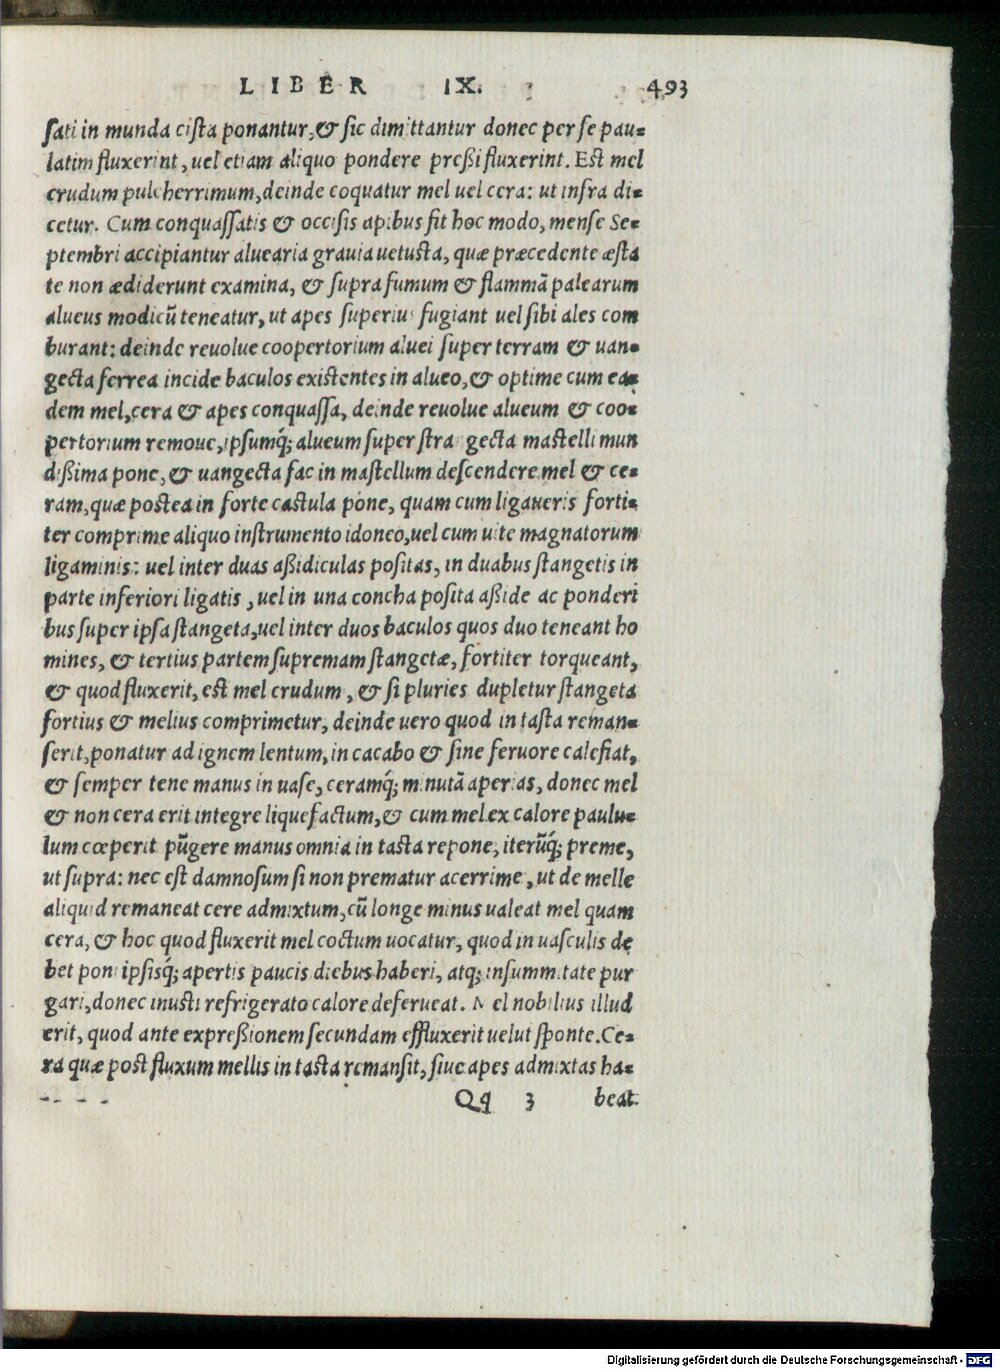 LIBER IX. 493
sati in munda cista ponantur, & sic dimittantur donec per se pau=
latim fluxerint, uel etiam aliquo pondere preßi fluxerint. Est mel
crudum pulcherrimum, deinde coquatur mel uel cera: ut infra di=
cetur. Cum conquassatis & occisis apibus fit hoc modo, mense Se=
ptembri accipiantur aluearia grauia uetusta, quæ præcedente æsta
te non ædiderunt examina, & supra fumum & flammā palearum
alueus modicū teneatur, ut apes superius fugiant uel sibi ales com
burant: deinde reuolue coopertorium aluei super terram & uan=
gecta ferrea incide baculos existentes in alueo, & optime cum ea=
dem mel, cera & apes conquassa, deinde reuolue alueum & coo=
pertorium remoue, ipsumq́; alueum super stra gecta mastelli mun
dißima pone, & uangecta fac in mastellum descendere mel & ce=
ram, quæ postea in forte castula pone, quam cum ligaueris forti=
ter comprime aliquo instrumento idoneo, uel cum uite magnatorum
ligaminis: uel inter duas aßidiculas positas, in duabus stangetis in
parte inferiori ligatis, uel in una concha posita aßide ac ponderi
bus super ipsa stangeta, uel inter duos baculos quos duo teneant ho
mines, & tertius partem supremam stangetæ, fortiter torqueant,
& quod fluxerit, est mel crudum, & si pluries dupletur stangeta
fortius & melius comprimetur, deinde uero quod in tasta reman=
serit, ponatur ad ignem lentum, in cacabo & sine feruore calefiat,
& semper tene manus in uase, ceramq́; minutā aperias, donec mel
& non cera erit integre liquefactum, & cum mel ex calore paulu=
lum cœperit pūgere manus omnia in tasta repone, iterūq́; preme,
ut supra: nec est damnosum si non prematur acerrime, ut de melle
aliquid remaneat cere admixtum, cū longe minus ualeat mel quam
cera, & hoc quod fluxerit mel coctum uocatur, quod in uasculis de
bet poni ipsisq́; apertis paucis diebus haberi, atq; in summitate pur
gari, donec inusti refrigerato calore deferueat. Mel nobilius illud
erit, quod ante expreßionem secundam effluxerit uelut sponte. Ce=
ra quæ post fluxum mellis in tasta remansit, siue apes admixtas ha=
Qq 3 beat.
Digitalisierung gefördert durch die Deutsche Forschungsgemeinschaft - DFG